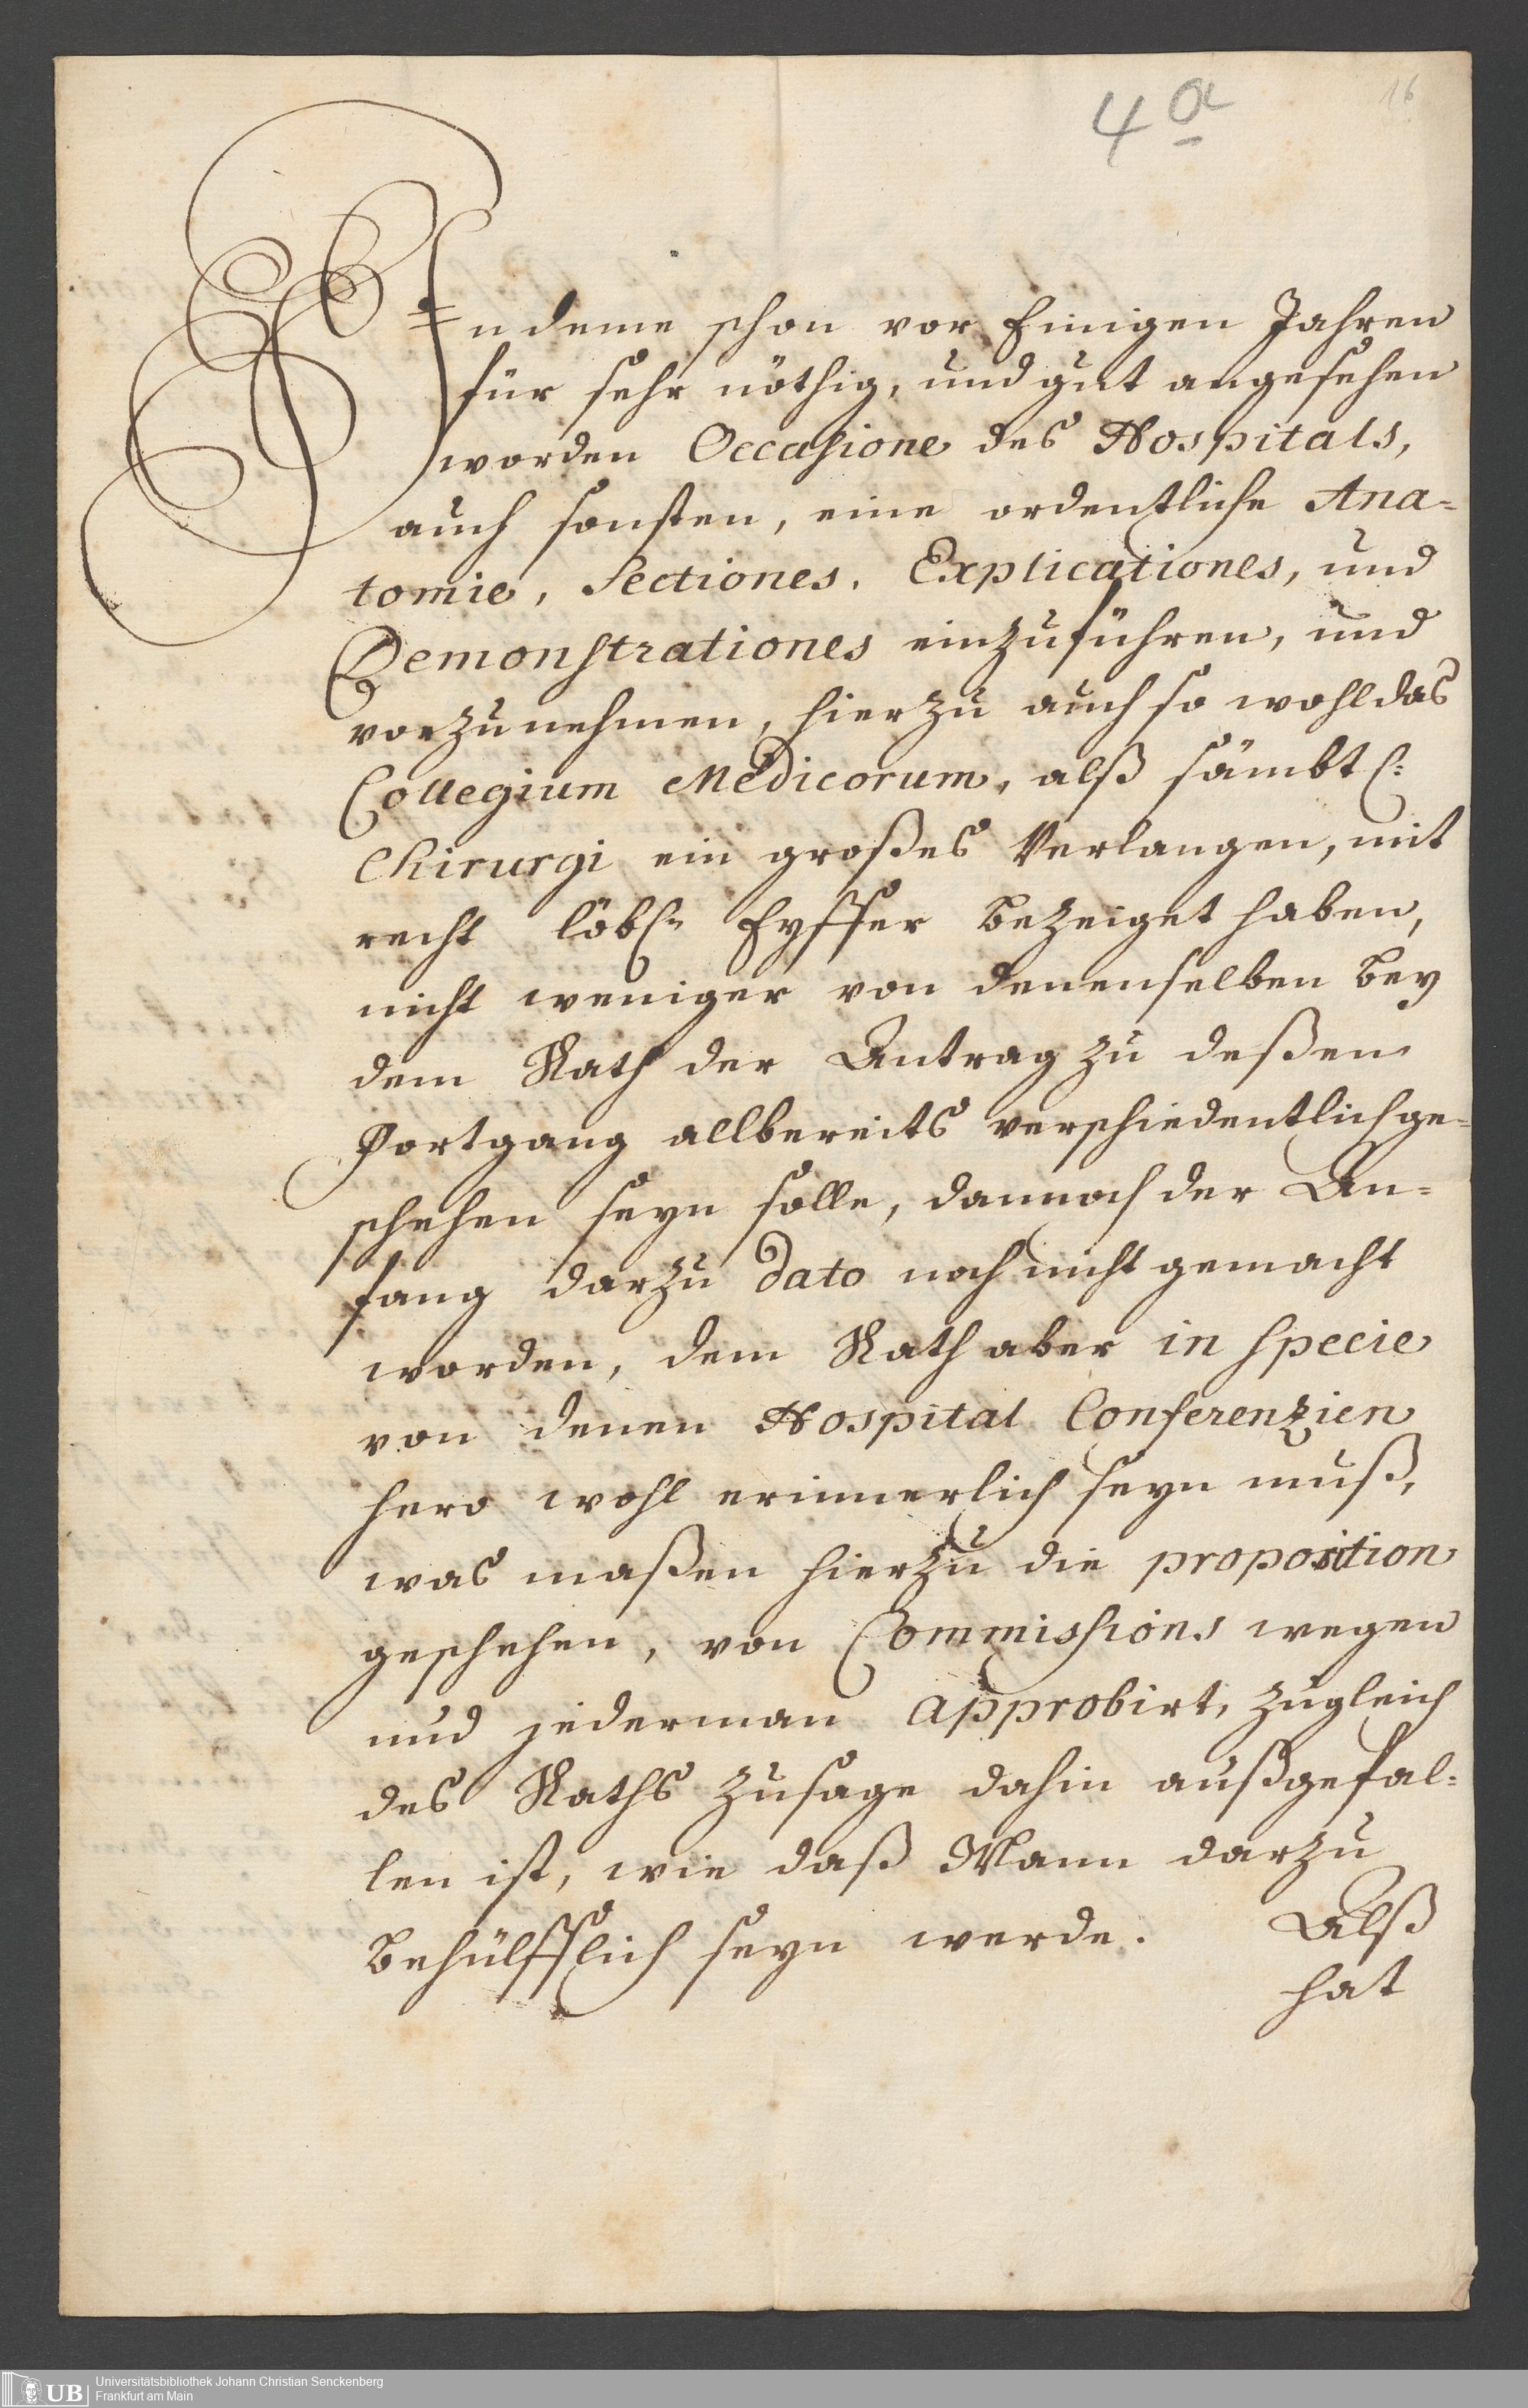 4 a
16
Indeme schon vor Einigen Jahren
für sehr nöthig, und gut angesehen
worden Occasione des Hospitals,
auch sonsten, eine ordentliche Ana-
tomie, Sectiones, Explicationes, und
Demonstrationes einzuführen, und
vorzunehmen, hierzu auch so wohl das
Collegium Medicorum, alß sämbtl:
Chirurgi ein großes Verlangen, mit
recht löbl: Eyffer bezeiget haben,
nicht weniger von denenselben bey
dem Rath der Antrag zu deßen
Fortgang allbereits verschiedentlich ge-
schehen seyn solle, dannoch der An-
fang darzu dato noch nicht gemacht
worden, dem Rath aber in specie
von denen Hospital Conferenzien
hero wohl erinnerlich seyn muß,
was maßen hierzu die proposition
geschehen, von Commissions wegen
und jederman approbirt, zugleich
des Raths Zusage dahin außgefal-
len ist, wie daß Mann darzu
behülfflich seyn werde. Alß
hat
UB
Universitätsbibliothek Johann Christian Senckenberg
Frankfurt am Main